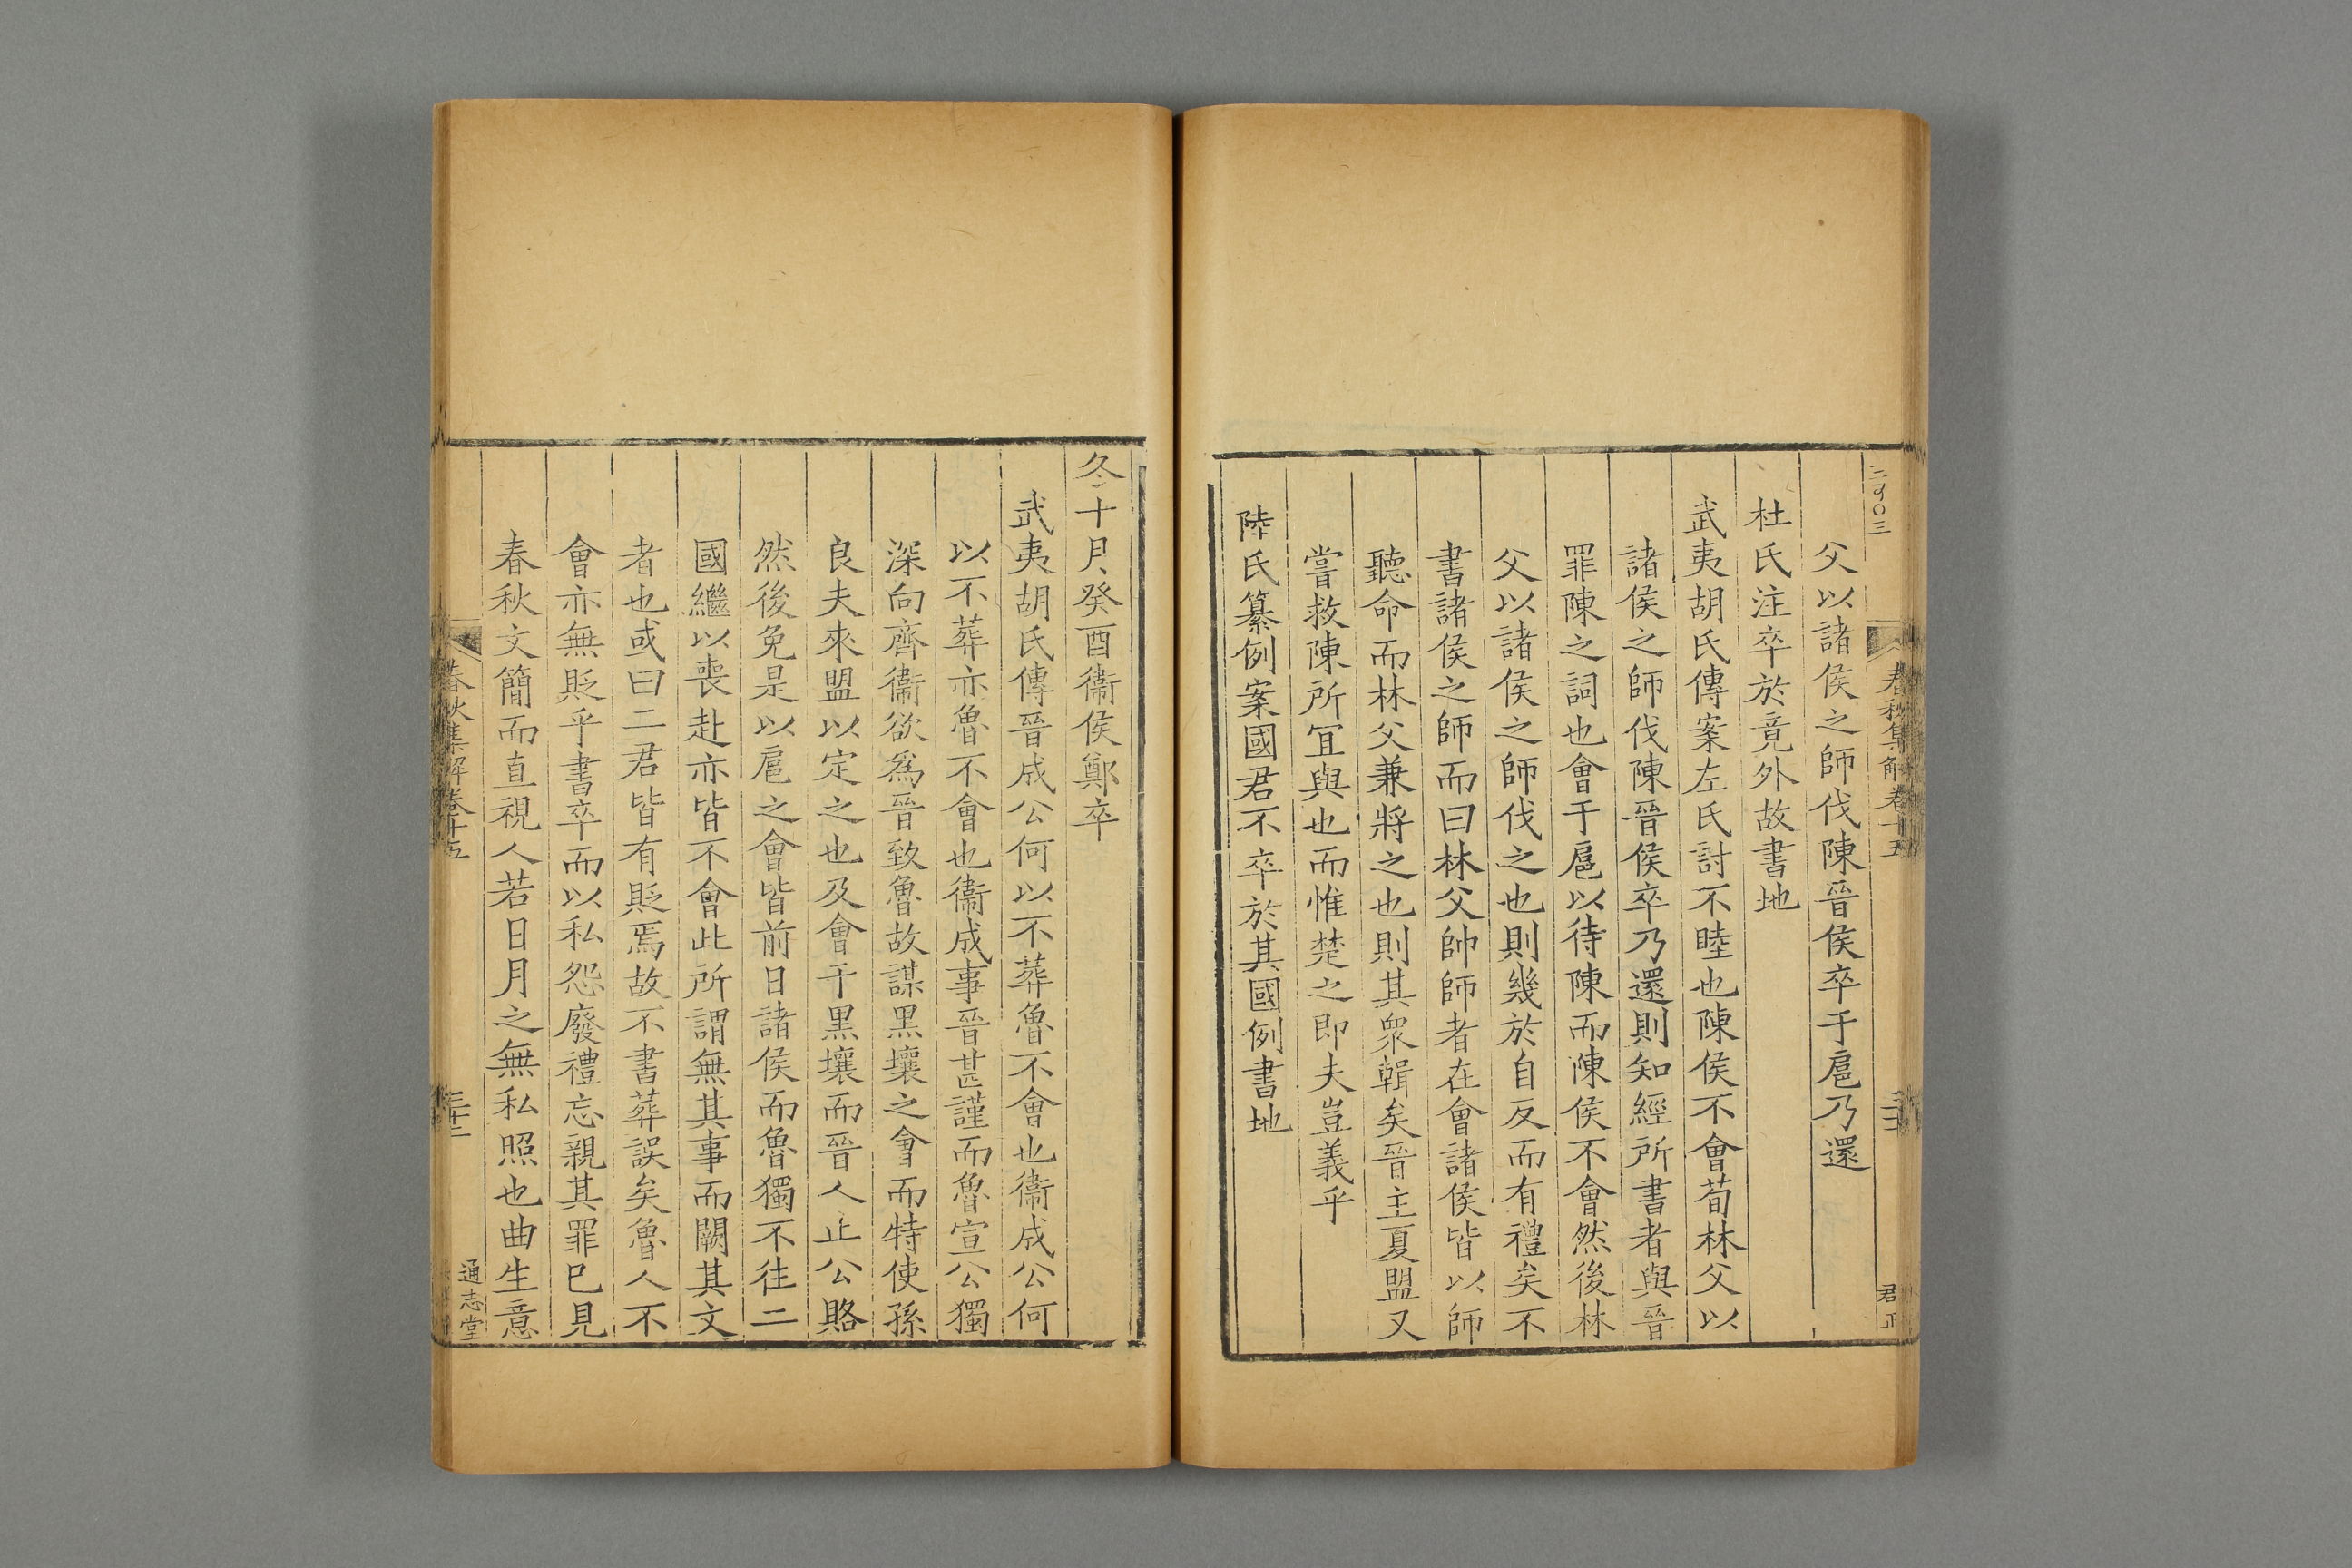 父以諸侯之師伐陳晉侯卒于扈乃還
杜氏注卒於竟外故書地
武夷胡氏傳案左氏討不睦也陳侯不會荀林父以
諸侯之師伐陳晉侯卒乃還則知經所書者與晉
罪陳之詞也會于扈以待陳而陳侯不會然後林
父以諸侯之師伐之也則幾於自反而有禮矣不
書諸侯之師而曰林父帥師者在會諸侯皆以師
聽命而林父兼將之也則其眾輯矣晉主夏盟又
嘗救陳所宜與也而惟楚之即夫豈義乎
陸氏纂例案國君不卒於其國例書地
春秋集解卷十五
君正
冬十月癸酉衞侯鄭卒
武夷胡氏傳晉成公何以不葬魯不會也衞成公何
以不葬亦魯不會也衞成事晉甚謹而魯宣公獨
深向齊衞欲為晉致魯故謀黑壤之會而特使孫
良夫來盟以定之也及會于黑壤而晉人止公賂
然後免是以扈之會皆前日諸侯而魯獨不往二
國繼以喪赴亦皆不會此所謂無其事而闕其文
者也或曰二君皆有貶焉故不書葬誤矣魯人不
會亦無貶乎書卒而以私怨廢禮忘親其罪巳見
春秋文簡而直視人若日月之無私照也曲生意
春秋集解卷十五
通志堂